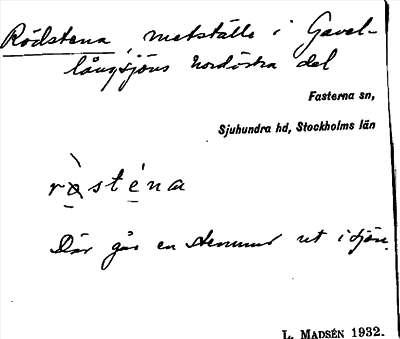 Rödstena, metställe i Gavel-
långsjöns nordöstra del
Fasterna sn,
Sjuhundra hd, Stockholms län
ròsténa
Där går en stenmur ut i sjön.
L. MADSÉN 1932.